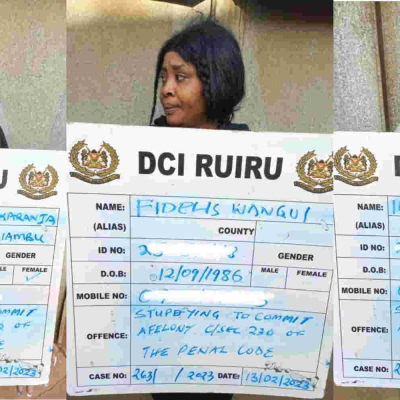 KARANJA
IAMBU
GENDER
FEMALE
02/2023
DCI RUIRU
NAME: FIDELIS WANGUI
(ALIAS)
COUNTY
ID NO:
GENDER
D.O.B: 12/09/1986
MALE FEMALE
MOBILE NO:
STUPEFYING TO COMMIT
OFFENCE: A FELONY C/SEC 230 OF
THE PENAL CODE
CASE NO: 263/ /2023 DATE: 13/02/2023
NAME:
(ALIAS)
ID NO:
D.O.B:
MOBILE NO:
OFFENCE:
CASE NO: